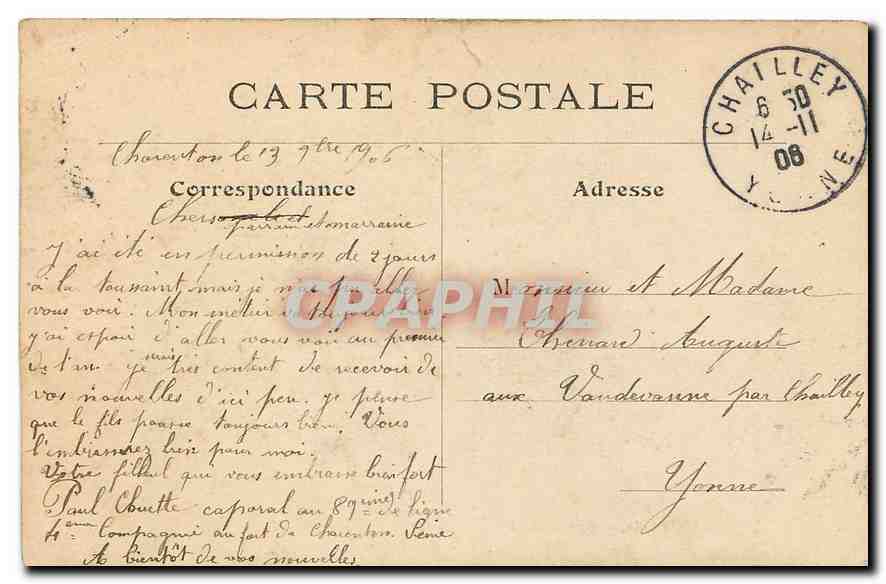 CARTE POSTALE
CHAILLEY
6 30
14 -11
06
YONNE
Charenton le 13 9bre 1906
Correspondance
Chers
parrain et marraine
J'ai été en permission de 2 jours
à la toussaint, mais je n'ai pu aller
vous voir. Mon métier va toujours bien
j'ai espoir d'aller vous voir au premier
de l'an. je
très content de recevoir de
vos nouvelles d'ici peu. je pense
que le fils pousse toujours bien. Vous
l'embrasserez bien pour moi.
Votre filleul qui vous embrasse bien fort
Paul Chuette caporal au 89ième de ligne
4ème Compagnie au fort de Charenton. Seine
A bientôt de vos nouvelles
Adresse
Monsieur et Madame
Thenard Auguste
aux Vaudevanne par Chailley
Yonne
CPAPHIL